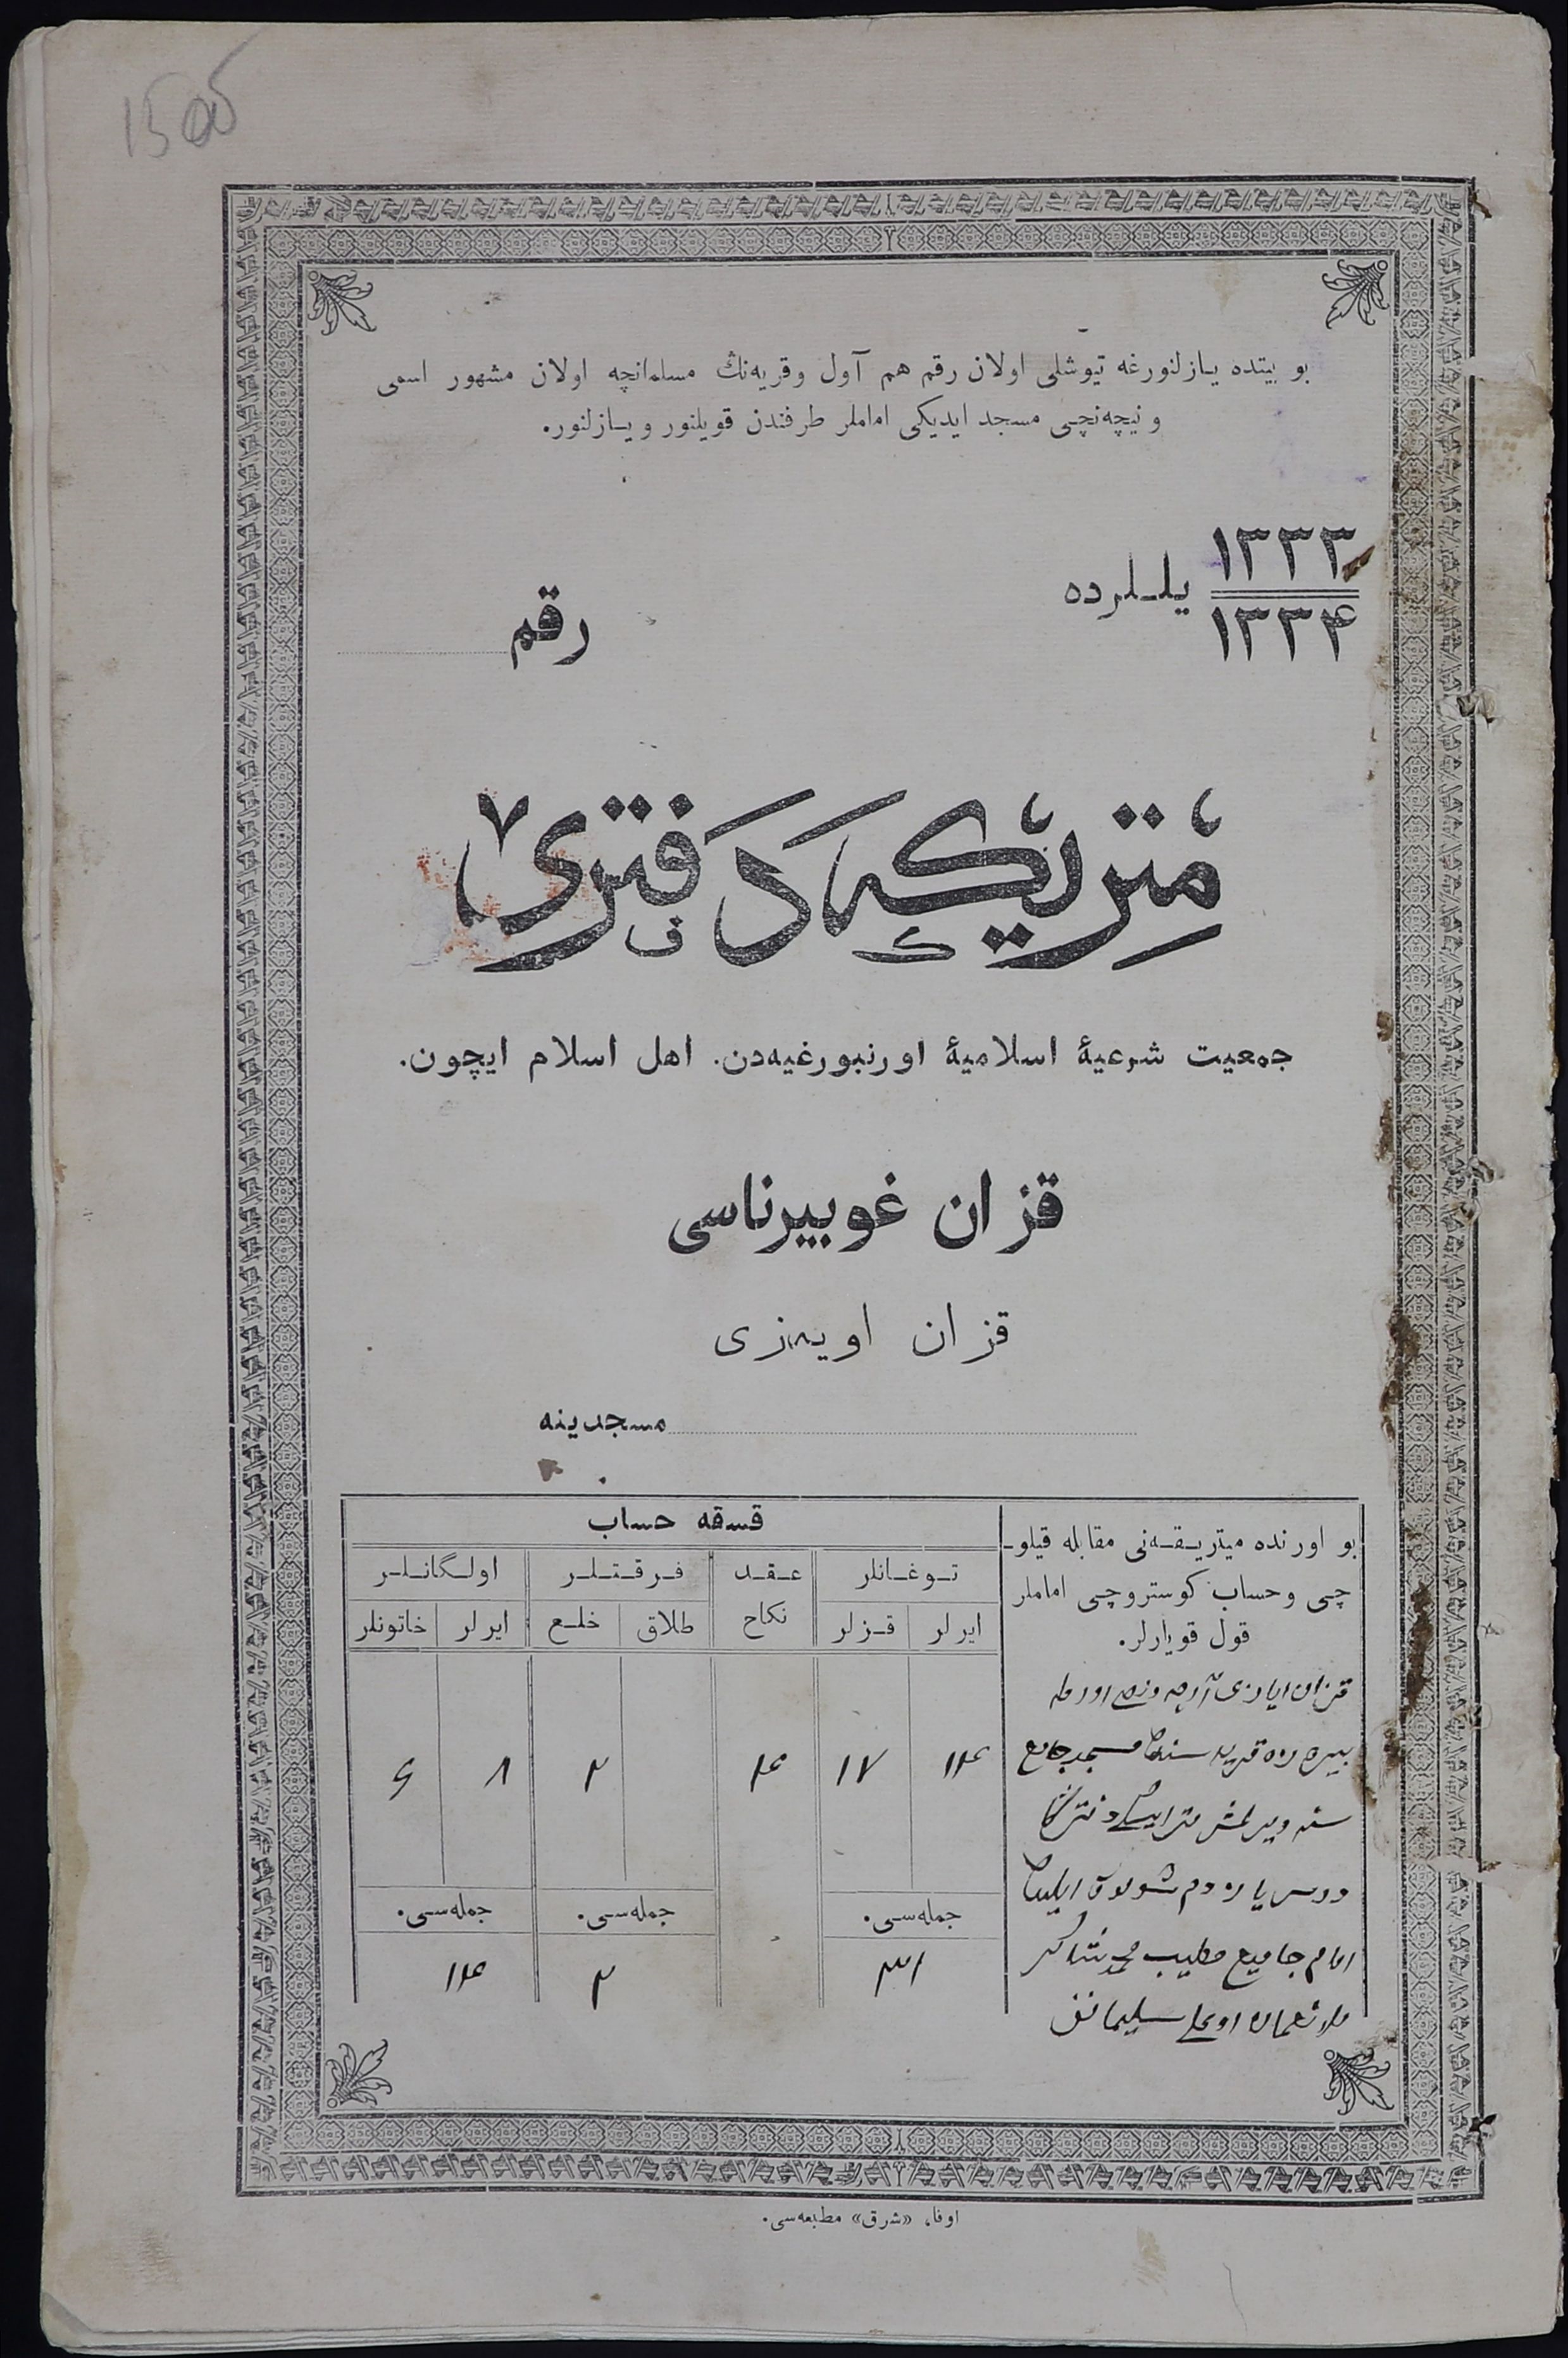 1505
بو بیتده یازلنورغه تیوشلی اولان رقم هم آول وقریه‌نڭ مسلمانچه اولان مشهور اسمی
و نیچه‌نچی مسجد ایدیکی اماملر طرفندن قویلنور و یازلنور.
۱۳۳۳
۱۳۳۴
یللرده
رقم
متریكه دفتری
جمعیت شرعیۀ اسلامیۀ اورنبورغیه‌دن. اهل اسلام ایچون.
قزان غوبیرناسی
قزان اویه‌زی
مسجدینه
بو اورنده میتریقه‌نی مقابله قیلو-
چی وحساب کوستروچی اماملر
قول قویارلر.
قسقه حساب
توغانلر
عقد
فرقتلر
اولگانلر
ایرلر
قزلر
نکاح
طلاق
خلع
ایرلر
خاتونلر
۱۴
۱۷
۴
۲
۸
۶
جمله‌سی.
جمله‌سی.
جمله‌سی.
۳۱
۲
۱۴
امام جامیع خطیب محمد شاکر
ملا نعمان اوغلی سلیمانف
اوفا، «شرق» مطبعه‌سی.